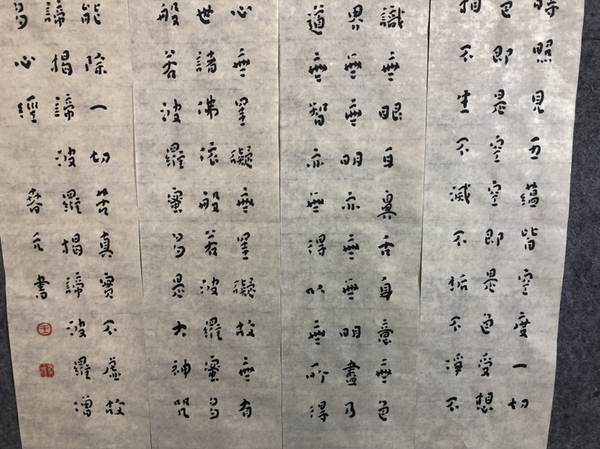 時照見五蘊皆空度一切
色即是空空即是色受想
相不生不滅不垢不淨不
識無眼耳鼻舌身意無色
界無無明亦無無明盡乃
道無智亦無得以無所得
心無罣礙無罣礙故無有
世諸佛依般若波羅蜜多
般若波羅蜜多是大神咒
能除一切苦真實不虛故
諦揭諦波羅揭諦波羅僧
多心經
書